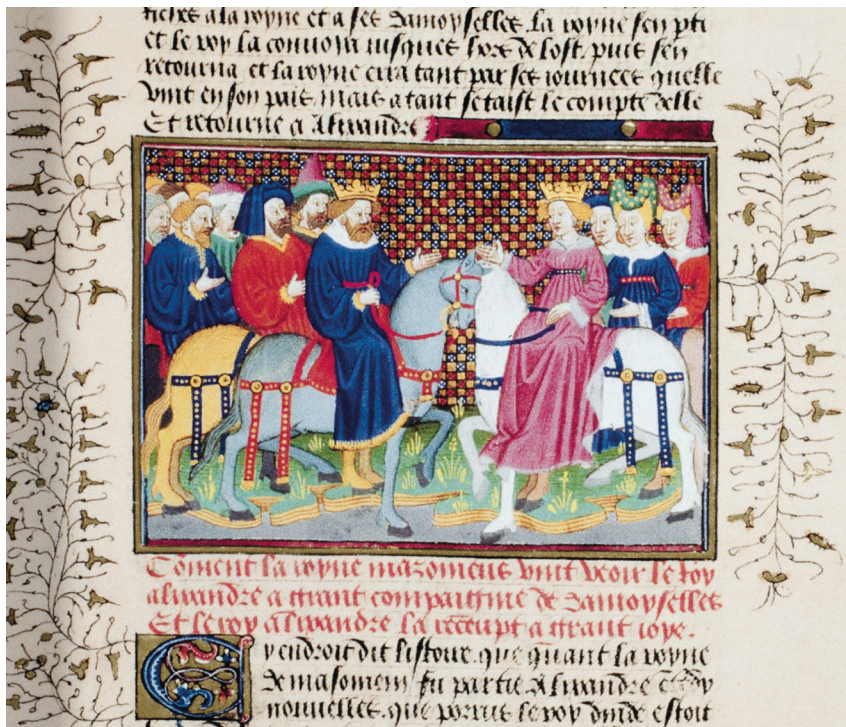 a la royne et a ses damoyselles. La royne sen pti
et le roy la convoia iusques hors de lost. puis sen
retourna et la royne erra tant par ses iournees quelle
vint en son pais. mais a tant se taist le compte delle
Et retourne a Alixandre
Cōment la royne mazomeus vint veoir le roy
alixandre a grant compaignie de damoyselles
Et le roy alixandre la receupt a grant ioye.
Cy endroit dit listoire. que quant la royne
de masomem fu partie Alixandre
nouvelles. que porrus le roy dinde estoit